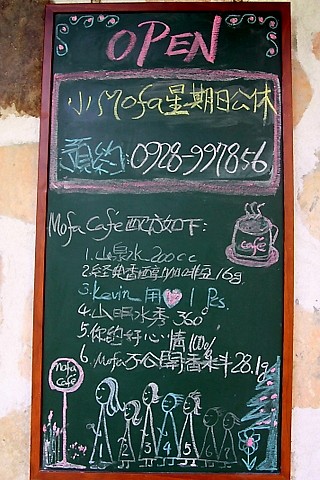 OPEN
小Mofa星期日公休
預約:0928-997856
Mofa Café配方如下:
1.山泉水200cc
2.經典香醇咖啡16g
3.Kevin用 1 Ps.
4.山明水秀360°
5.你的好心情100%
6.Mofa不公開香料28.1g
café
mofa
café
1 2 3 4 5 6 7